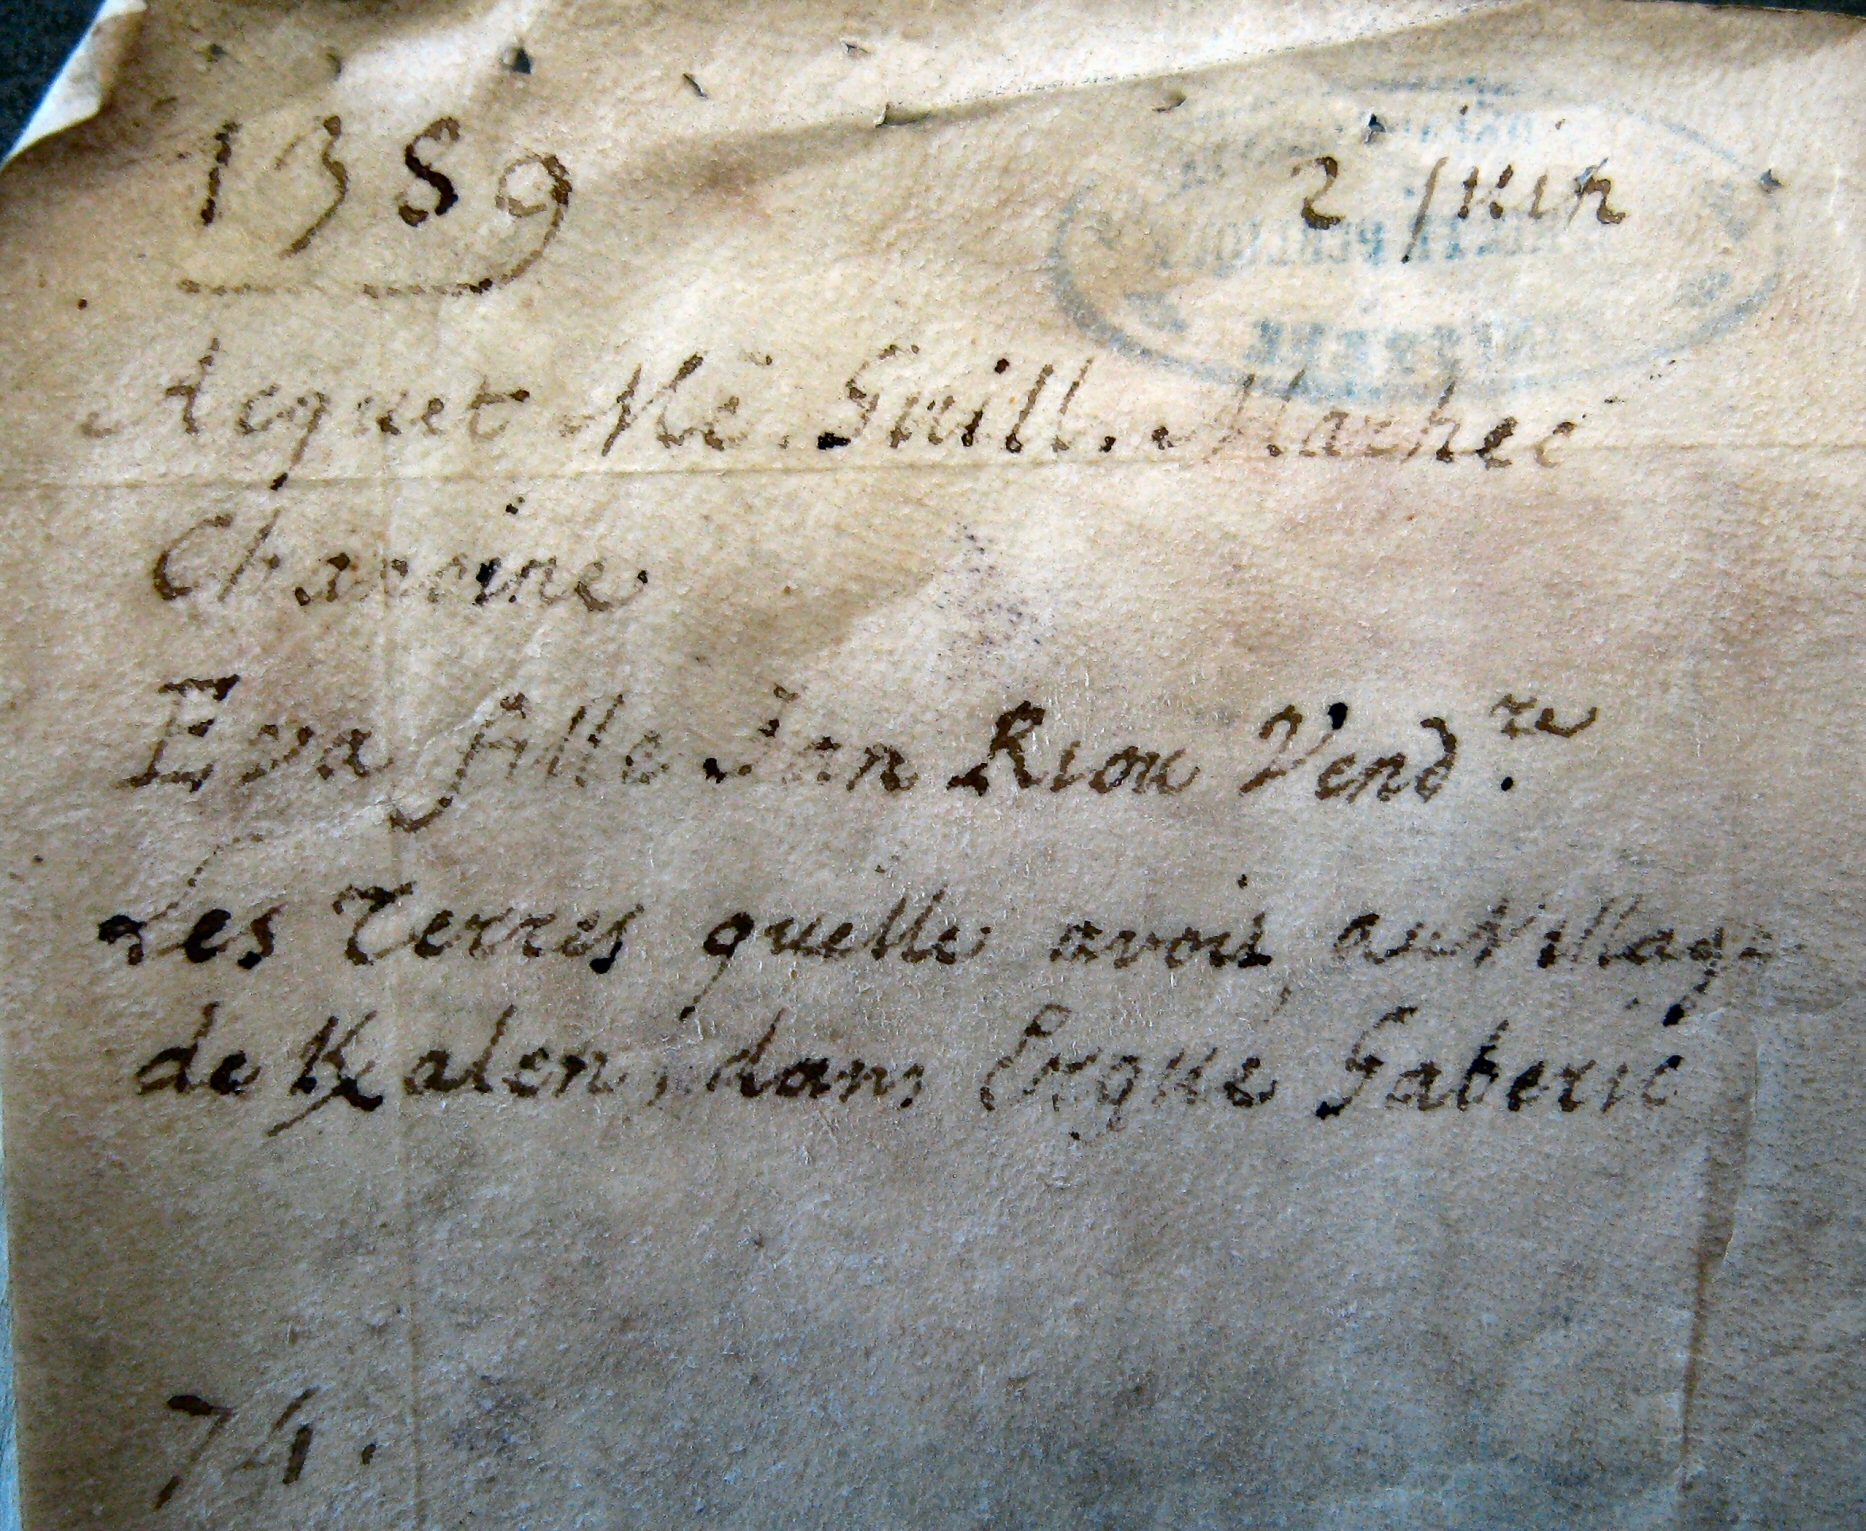 1389 2 juin
Acquet Me. Guill. Marhec
Chanoine
Eva fille Jan Riou Vend.re
Les Terres quelle avoit au Village
de Kalen, dans Ergué Gaberic
74.